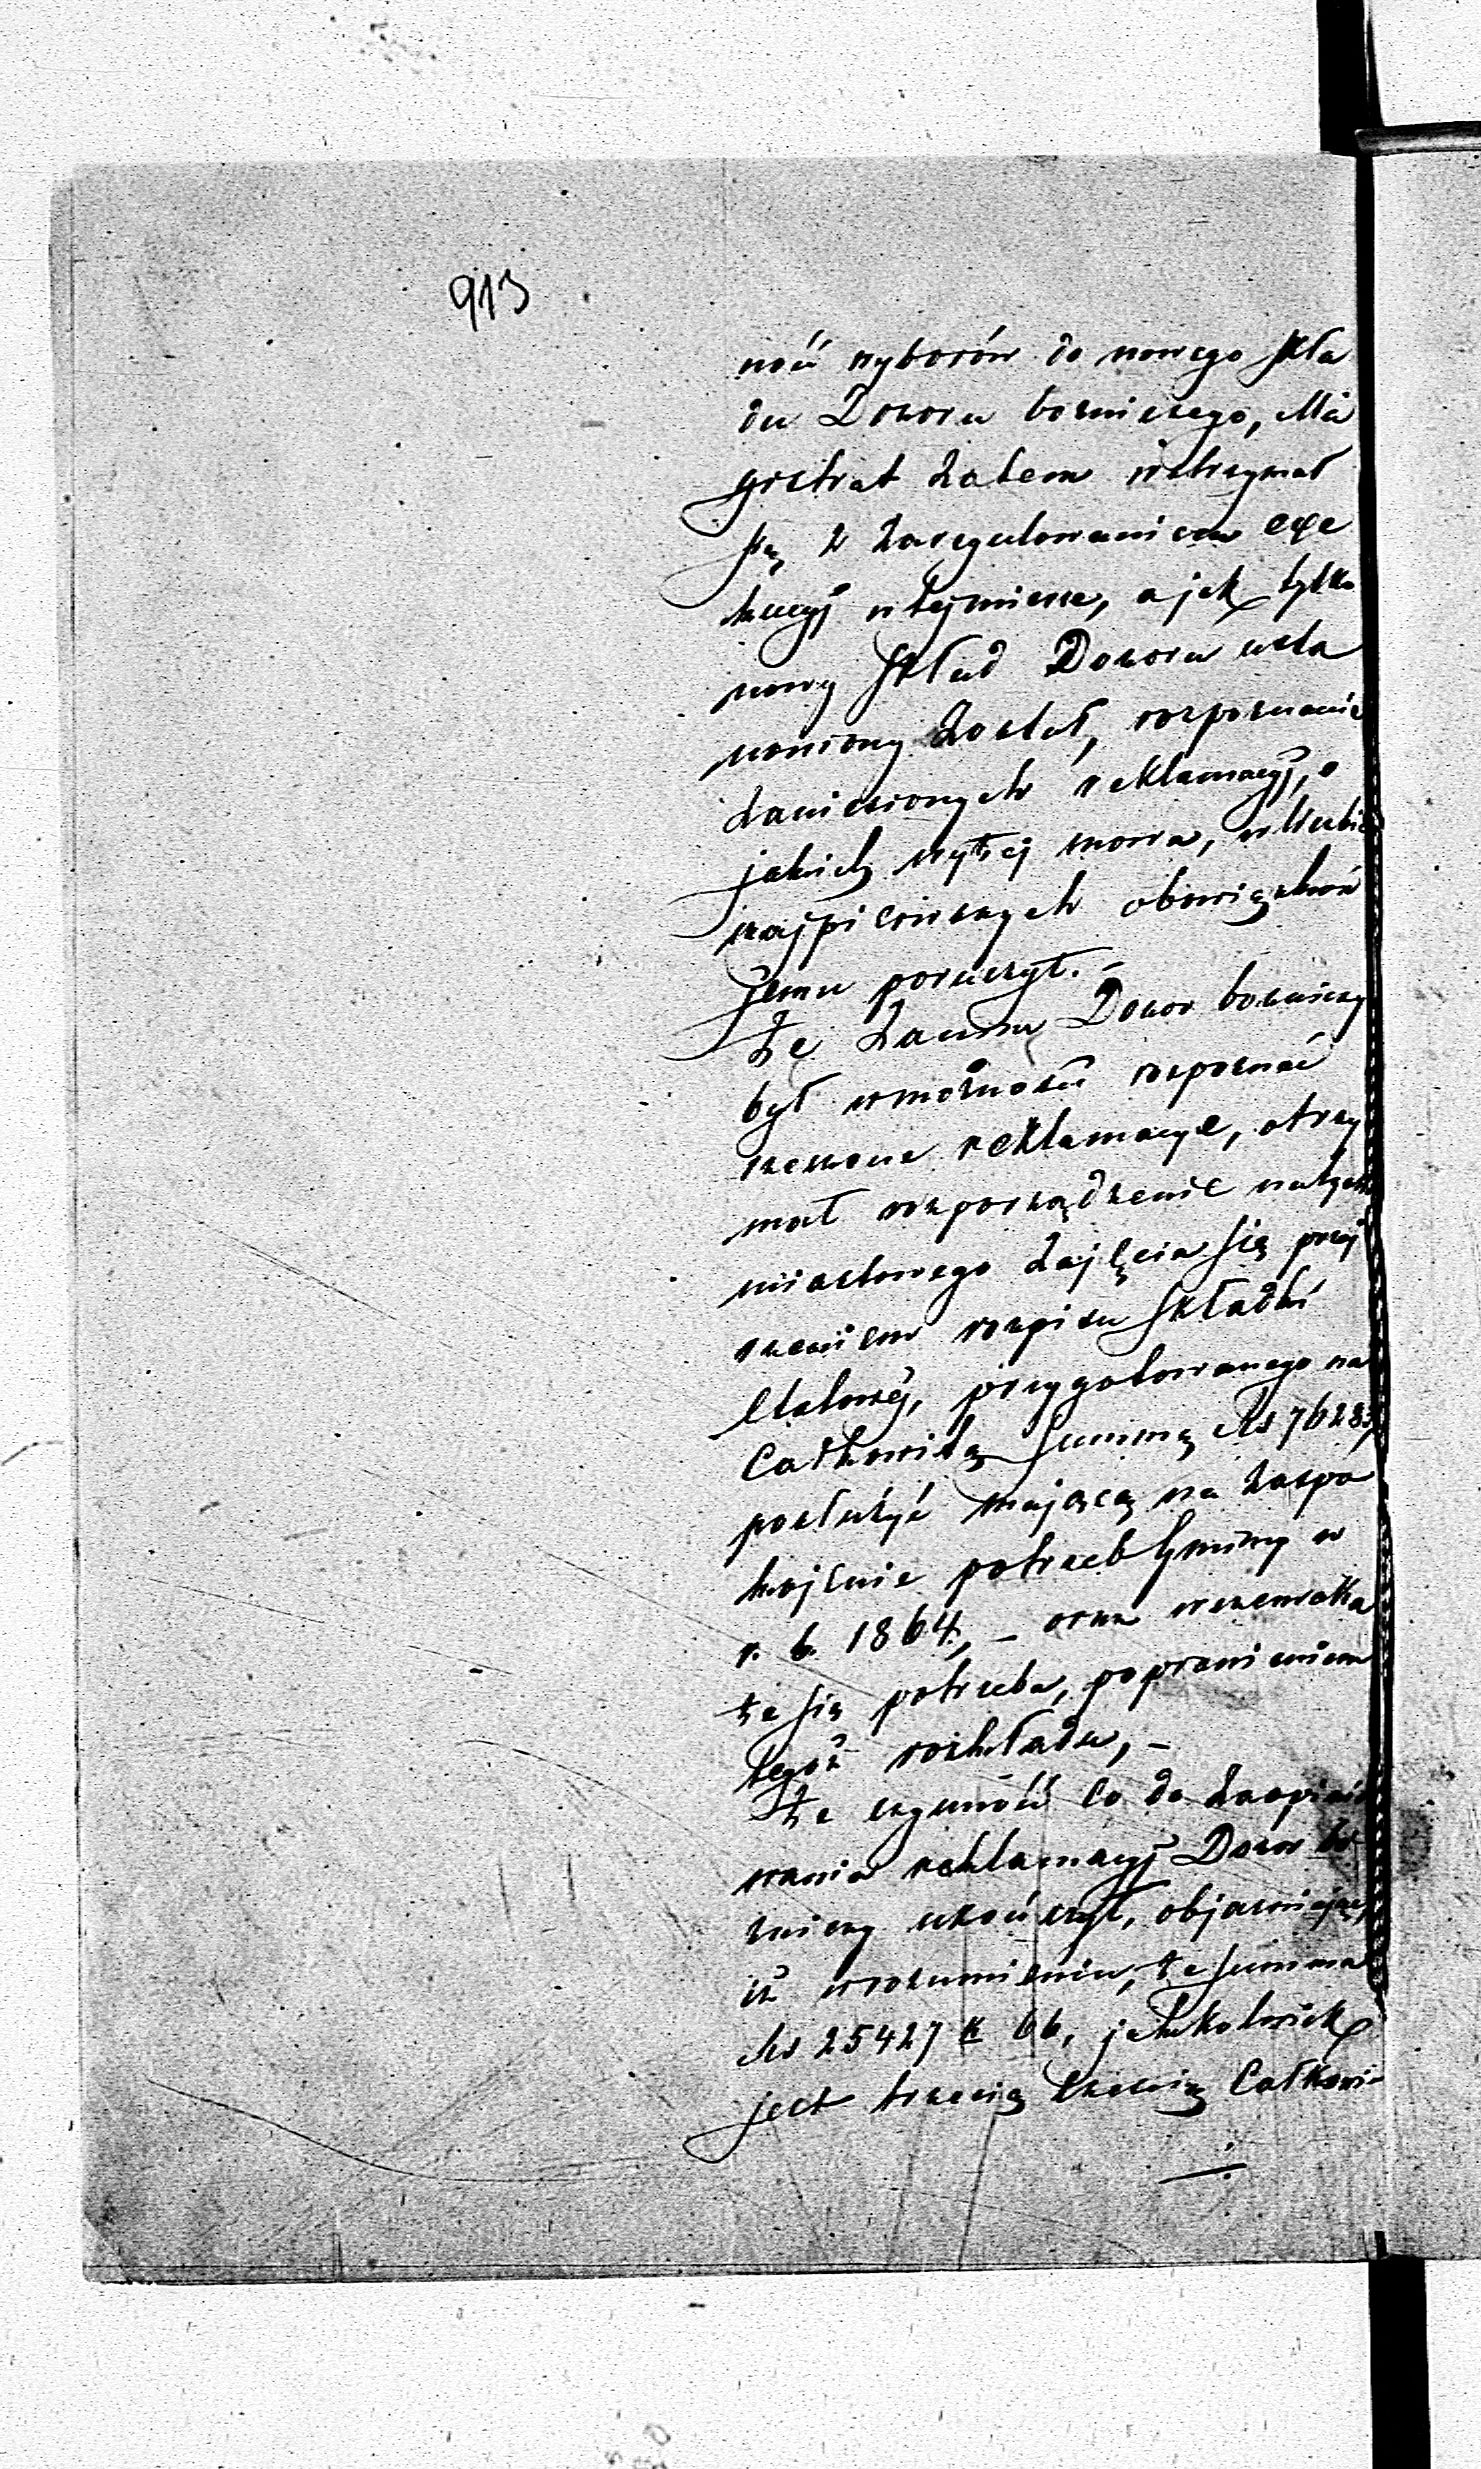 913
ność wyborów do nowego skła
du Dozoru bożniczego, Ma
gistrat zatem wstrzymał
się z zaregulowaniem exe
kucyj w tej mierze, a jak tylko
nowy skład Dozoru usta
nowiony został, rozpoznanie
zaniesionych reklamacyj, o
jakich wyżej mowa, w liczbie
najpilniejszych obowiązków
jemu poruczył. –
Że zanim Dozor bożniczy
był w możności rozpoznać
rzeczone reklamacye, otrzy
mał rozporządzenie natych
miastowego zajęcia się przej
rzeniem rozpisu składki
etatowej, przygotowanego na
całkowitą summę Rs 76283,
posłużyć mającą na zaspo
kojenie potrzeb gminy w
r. b. 1864, – oraz
że się potrzeba, poprawieniem
tegoż rozkładu, –
Że czynność co do zaopinio
wania reklamacyj Dozor bo
żniczy ukończył, objaśniając,
iż w rozumieniu, że summa
Rs 25427 k 66, jakkolwiek
jest trzecią częścią całkowi-